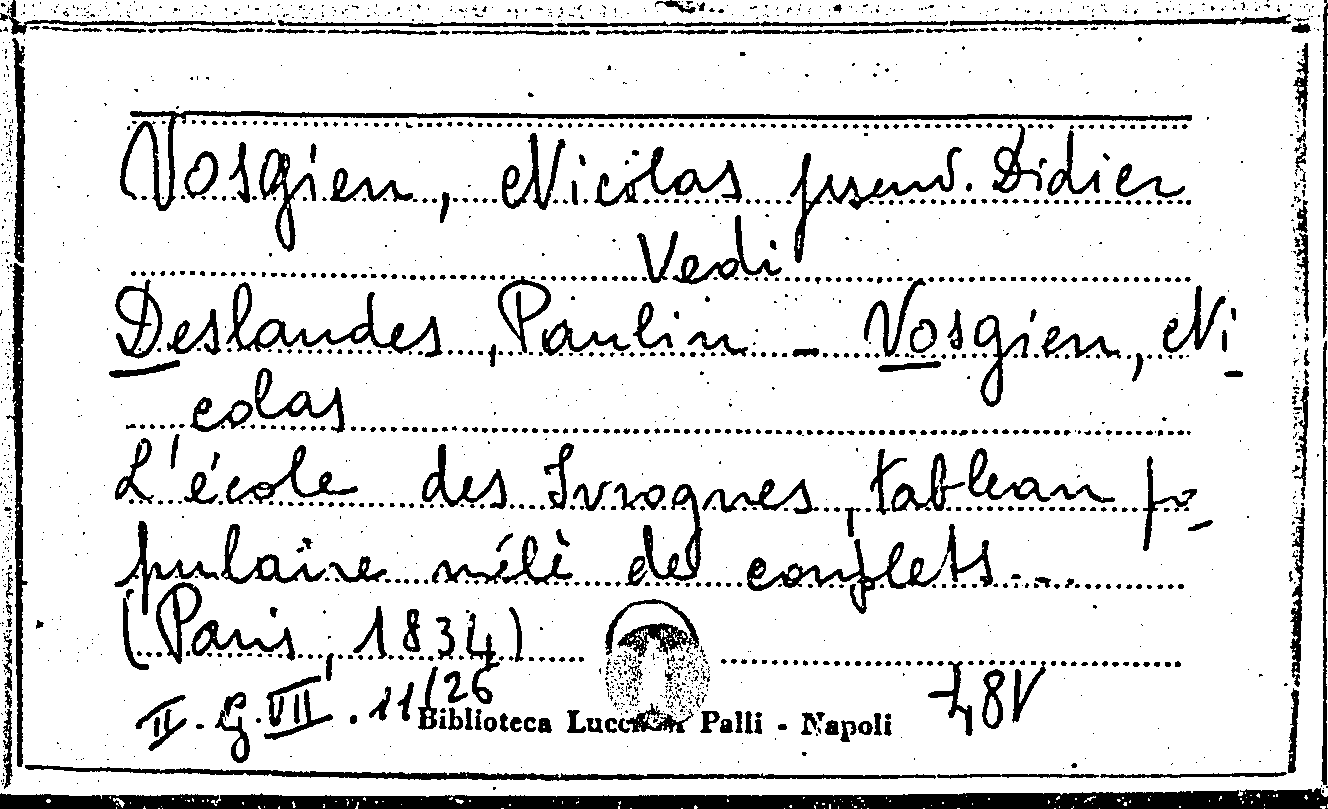 Vosgien, Nicolas pseud. Didier
Vedi
Deslandes, Paulin - Vosgien, Ni
colas
L'école des Ivrognes, tableau po-
pulaire mélè de couplets...
(Paris, 1834)
II. G. VII. 11/26
Biblioteca Lucchesi Palli - Napoli